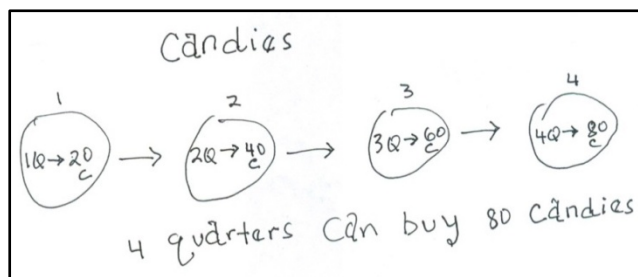 Candies
1 2 3 4
1Q → 20 C → 2Q → 40 C → 3Q → 60 C → 4Q → 80 C
4 quarters can buy 80 candies